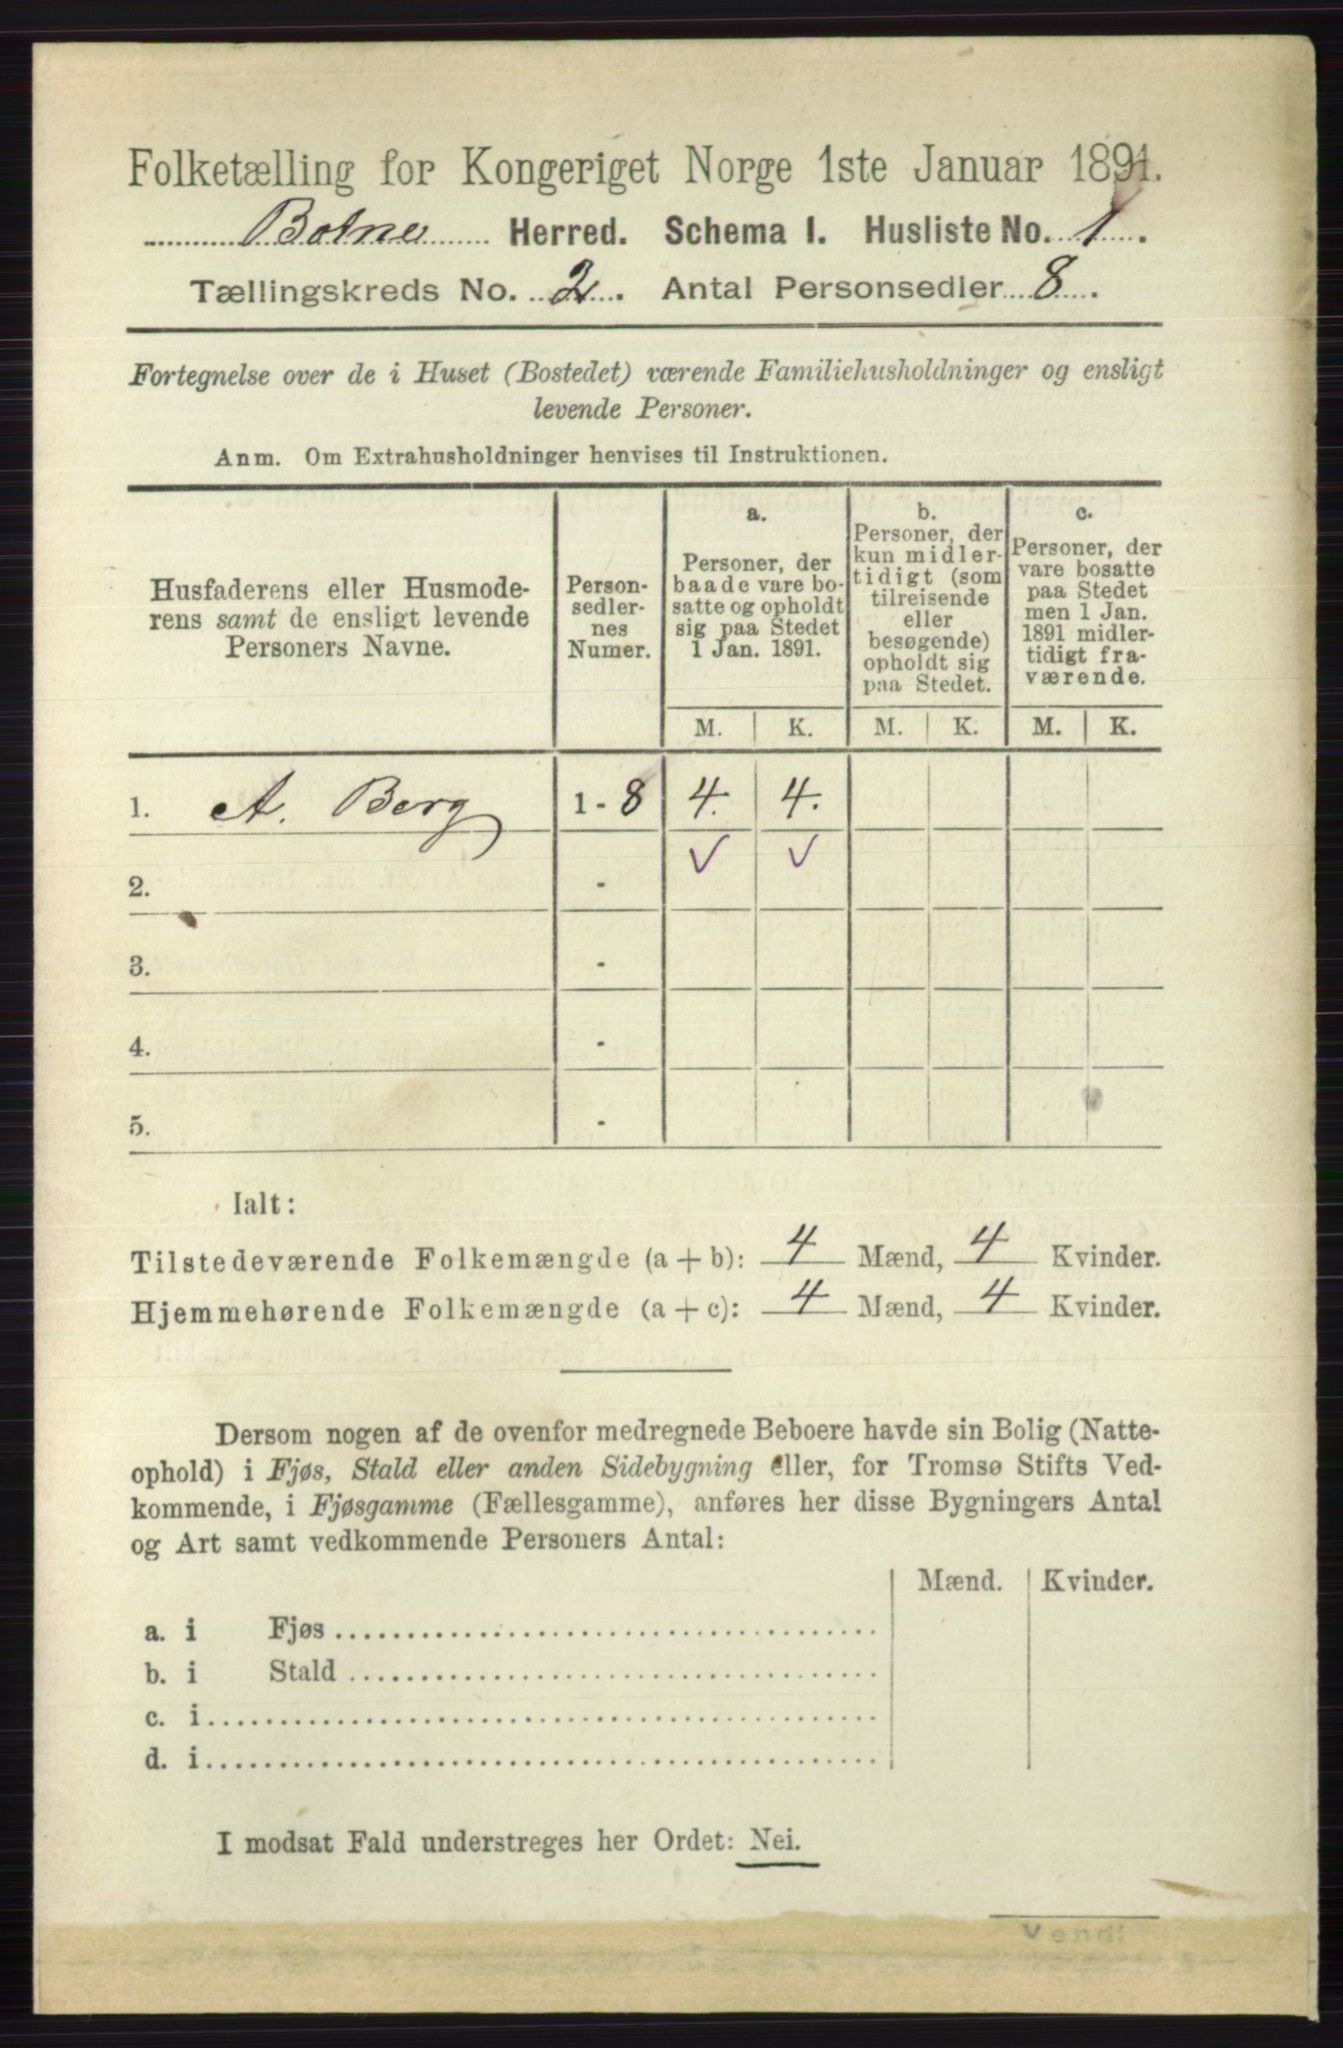 Folketælling for Kongeriget Norge 1ste Januar 1891.
Botne Herred. Schema I. Husliste No. 1.
Tællingskreds No. 2. Antal Personsedler 8.
Fortegnelse over de i Huset (Bostedet) værende Familiehusholdninger og ensligt
levende Personer.
Anm. Om Extrahusholdninger henvises til Instruktionen.
Husfaderens eller Husmode-
rens samt de ensligt levende
Personers Navne.
Person-
sedler-
nes
Numer.
a.
Personer, der
baade vare bo-
satte og opholdt
sig paa Stedet
1 Jan. 1891.
b.
Personer, der
kun midler-
tidigt (som
tilreisende
eller
besøgende)
opholdt sig
paa Stedet.
c.
Personer, der
vare bosatte
paa Stedet
men 1 Jan.
1891 midler-
tidigt fra-
værende.
M. K. M. K. M. K.
1. A. Berg 1 - 8 4. 4.
2. - ✓ ✓
3. -
4. -
5. -
Ialt:
Tilstedeværende Folkemængde (a + b): 4 Mænd, 4 Kvinder.
Hjemmehørende Folkemængde (a + c): 4 Mænd, 4 Kvinder.
Dersom nogen af de ovenfor medregnede Beboere havde sin Bolig (Natte-
ophold) i Fjøs, Stald eller anden Sidebygning eller, for Tromsø Stifts Ved-
kommende, i Fjøsgamme (Fællesgamme), anføres her disse Bygningers Antal
og Art samt vedkommende Personers Antal:
Mænd. Kvinder.
a. i Fjøs
b. i Stald
c. i
d. i
I modsat Fald understreges her Ordet: Nei.
Vend!